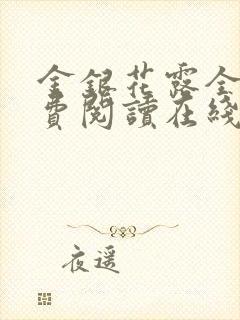 金銀花露全
費閱讀在綫
夜遥